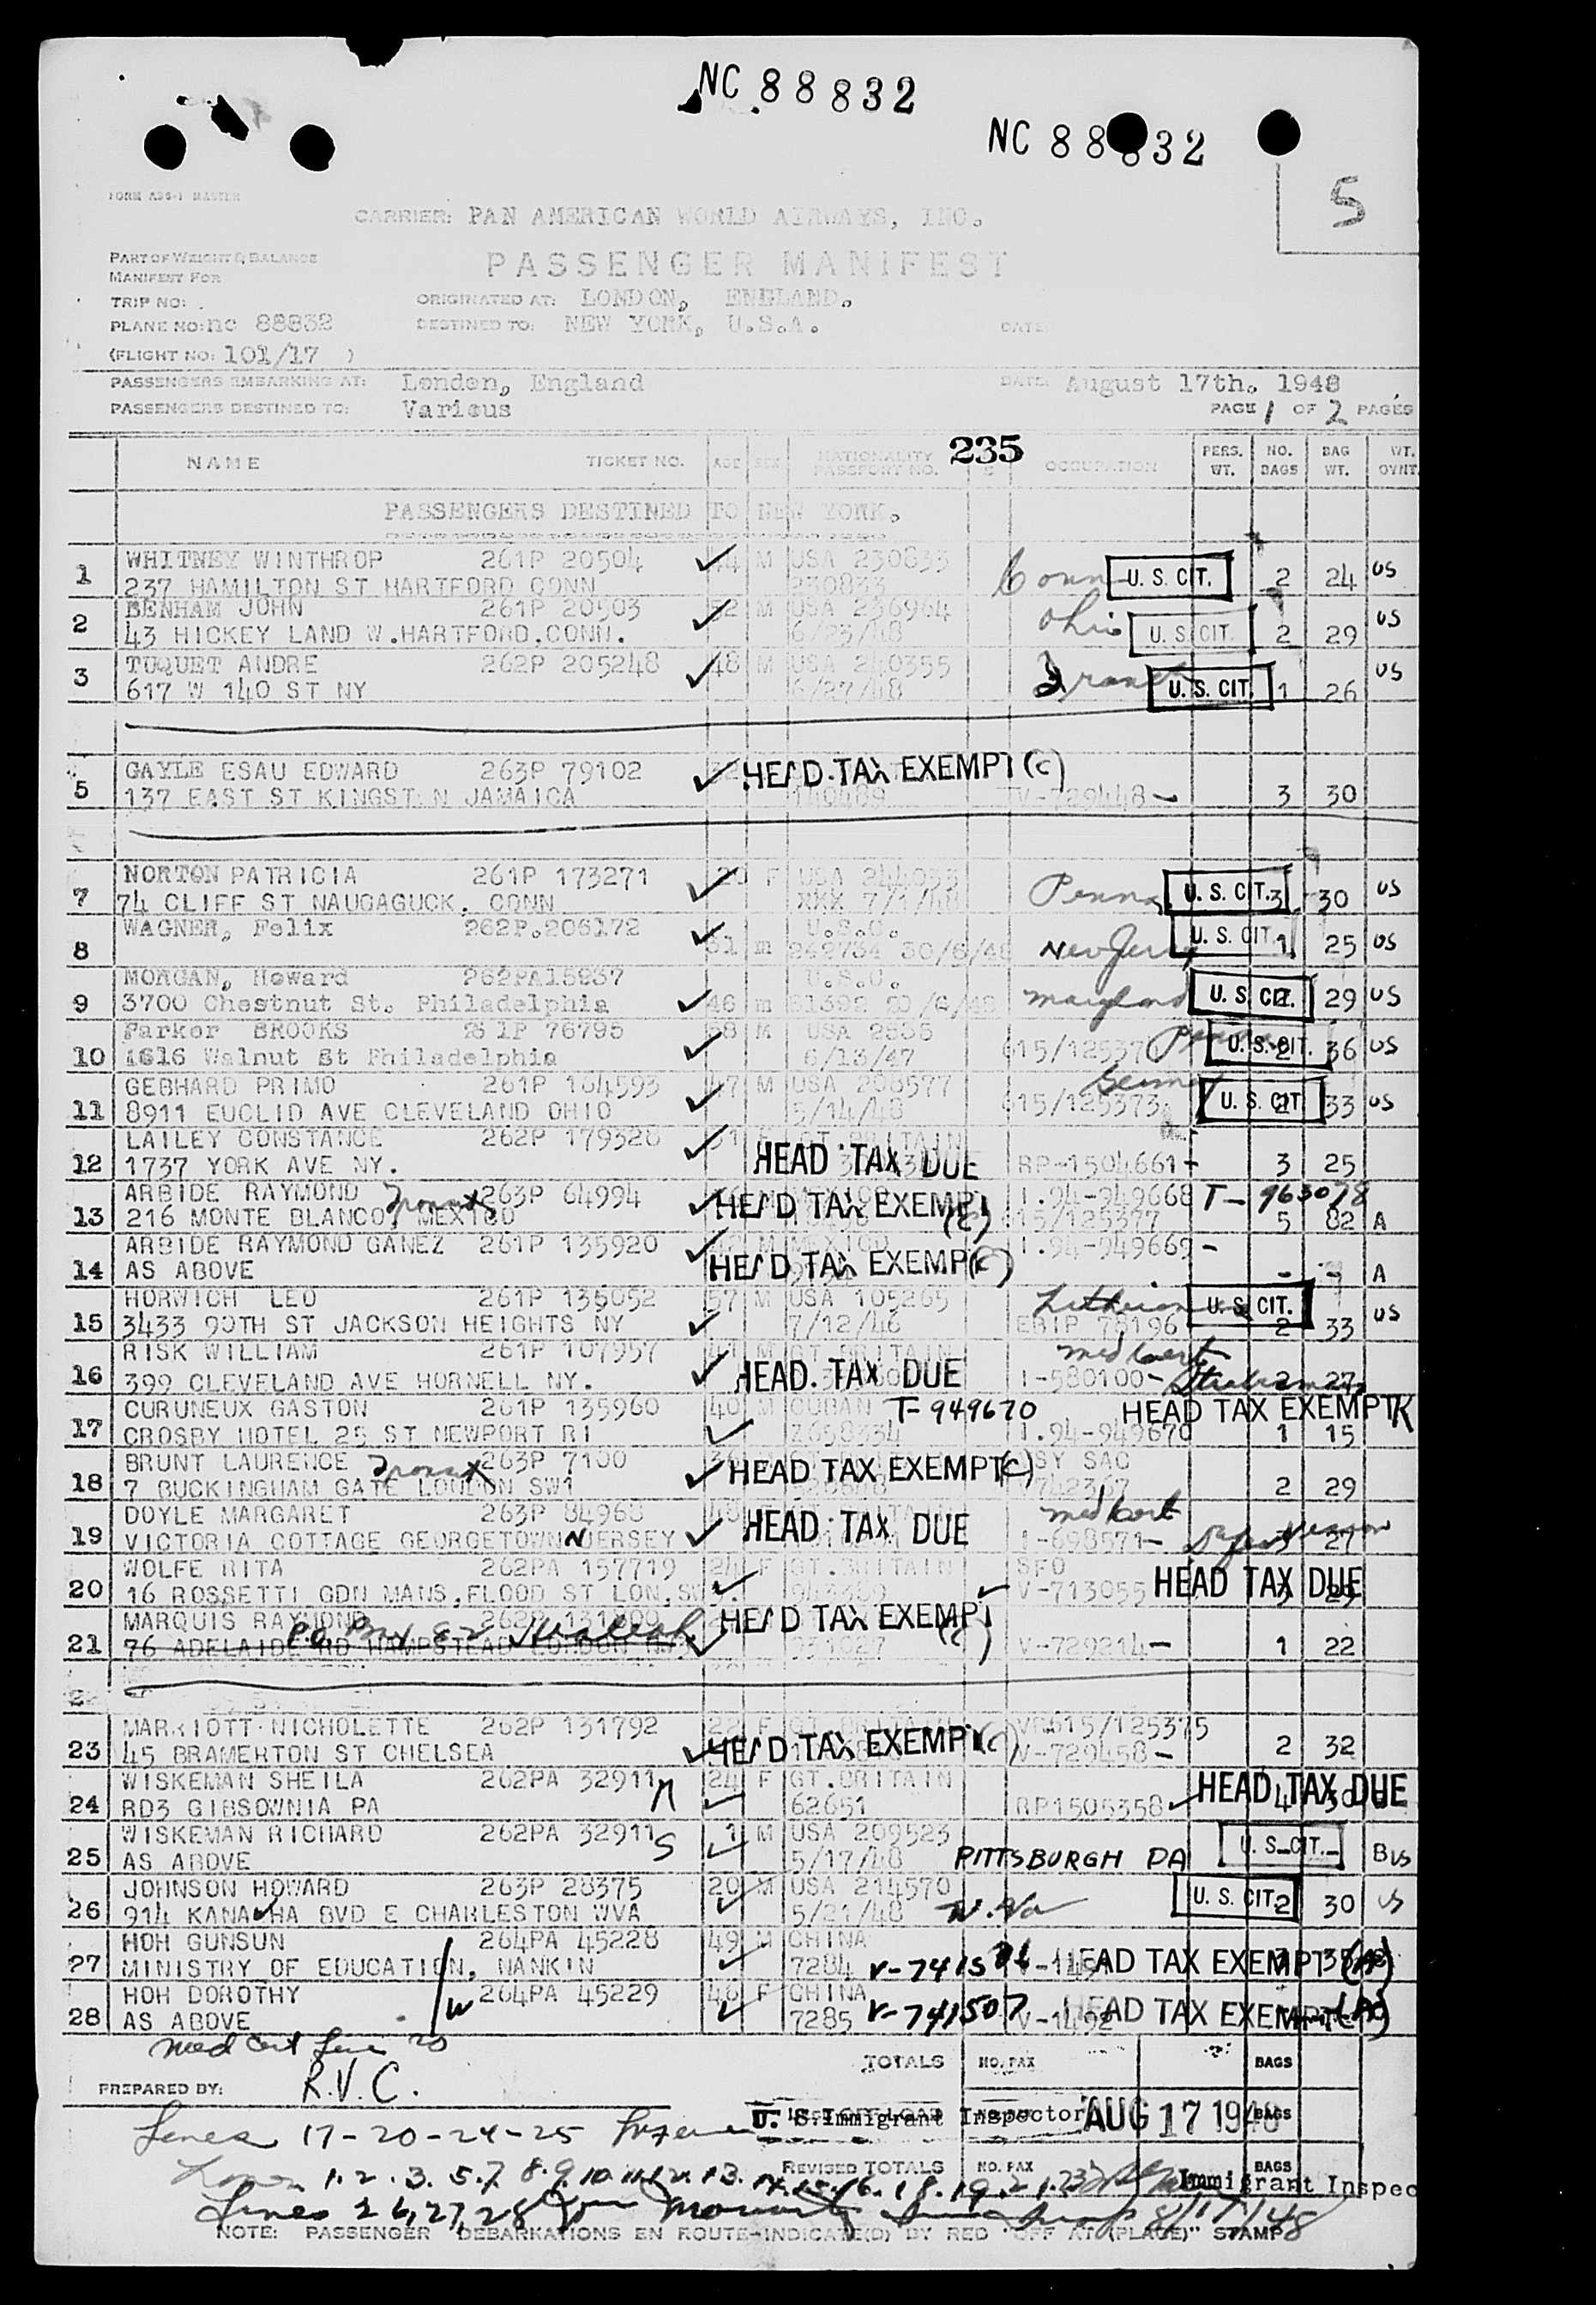 NC 88832
NC 88832
5
FORM ABS-1 MASTER
CARRIER: PAN AMERICAN WORLD AIRWAYS, INC.
PART OF WEIGHT & BALANCE
MANIFEST FOR
PASSENGER MANIFEST
TRIP NO:
ORIGINATED AT: LONDON, ENGLAND.
PLANE NO: nc 88832
DESTINED TO: NEW YORK, U.S.A.
DATE:
(FLIGHT NO: 101/17 )
PASSENGERS EMBARKING AT: London, England
DATE: August 17th. 1948
PASSENGERS DESTINED TO: Various
PAGE 1 OF 2 PAGES
235
NAME TICKET NO. AGE SEX NATIONALITY PASSPORT NO. OCCUPATION PERS. WT. NO. BAGS BAG WT. WT. OVHT.
PASSENGERS DESTINED TO NEW YORK.
1 WHITNEY WINTHROP 261P 20504 44 M USA 230833 Conn U. S. CIT. 2 24 US
237 HAMILTON ST HARTFORD CONN 230833
2 BENHAM JOHN 261P 20503 52 M USA 236964 Ohio U. S. CIT. 2 29 US
43 HICKEY LAND W.HARTFORD.CONN. 6/23/48
3 TUQUET ANDRE 262P 205248 48 M USA 240355 France U. S. CIT. 1 26 US
617 W 140 ST NY 6/27/48
5 GAYLE ESAU EDWARD 263P 79102 HEAD TAX EXEMPT (C)
137 EAST ST KINGSTON JAMAICA 140489 V-729448- 3 30
7 NORTON PATRICIA 261P 173271 F USA Penna U. S. CIT. 3 30 US
74 CLIFF ST NAUGAGUCK. CONN XXX 7/1/48
8 WAGNER, Felix 262P.206172 m U.S.C. 262734 30/6/48 New Jersey U. S. CIT. 1 25 US
9 MORGAN, Howard 262PA15937 U.S.C.
3700 Chestnut St. Philadelphia 46 m Maryland U. S. CIT. 2 29 US
10 Parker BROOKS 261P 76795 58 M USA
1616 Walnut St Philadelphia 6/13/47 615/12537 Penna U. S. CIT. 2 36 US
11 GEBHARD PRIMO 261P 164593 47 M USA 206577
8911 EUCLID AVE CLEVELAND OHIO 5/14/48 615/125373 U. S. CIT. 2 33 US
12 LAILEY CONSTANCE 262P 179328 31 F GT.BRITAIN
1737 YORK AVE NY. HEAD TAX DUE RP-1504661- 3 25
13 ARBIDE RAYMOND 263P 64994 HEAD TAX EXEMPT (C) I.94-949668 T-963078
216 MONTE BLANCO, MEXICO 615/125377 5 82 A
14 ARBIDE RAYMOND GANEZ 261P 135920 M MEXICO I.94-949669-
AS ABOVE HEAD TAX EXEMPT (C) - - A
15 HORWICH LEO 261P 135052 57 M USA 105265 U. S. CIT.
3433 90TH ST JACKSON HEIGHTS NY 7/12/46 ERIP 78196 2 33 US
16 RISK WILLIAM 261P 107957 41 M GT.BRITAIN med cert
399 CLEVELAND AVE HORNELL NY. HEAD TAX DUE I-580100- 2 27
17 CURUNEUX GASTON 261P 135960 40 M CUBAN T-949670 HEAD TAX EXEMPT K
CROSBY HOTEL 25 ST NEWPORT RI I.94-949670 1 15
18 BRUNT LAURENCE 263P 7100 HEAD TAX EXEMPT (C)
7 BUCKINGHAM GATE LONDON SW1 V742367 2 29
19 DOYLE MARGARET 263P 84968 med cert
VICTORIA COTTAGE GEORGETOWN N JERSEY HEAD TAX DUE I-698571- 27
20 WOLFE RITA 262PA 157719 24 F GT.BRITAIN SFO
16 ROSSETTI GDN MANS,FLOOD ST LON,SW V-713055 HEAD TAX DUE
21 MARQUIS RAYMOND HEAD TAX EXEMPT (C)
76 ADELAIDE RD HAMPSTEAD LONDON V-729214- 1 22
P.O. Box
23 MARRIOTT NICHOLETTE 262P 131792 22 F GT.BRITAIN VR615/125375
45 BRAMERTON ST CHELSEA HEAD TAX EXEMPT (C) V-729458- 2 32
24 WISKEMAN SHEILA 262PA 32911 24 F GT.BRITAIN HEAD TAX DUE
RD3 GIBSOWNIA PA 62651 RP1505358 4
25 WISKEMAN RICHARD 262PA 32911 S 1 M USA 209523 U. S. CIT.
AS ABOVE 5/17/48 PITTSBURGH PA B US
26 JOHNSON HOWARD 263P 28375 20 M USA 214570 U. S. CIT. 2 30 US
914 KANAWHA BVD E CHARLESTON WVA 5/21/48 W. Va
27 HOH GUNSUN 264PA 45228 49 M CHINA
MINISTRY OF EDUCATION, NANKIN 7284 HEAD TAX EXEMPT (A)
28 HOH DOROTHY 264PA 45229 46 F CHINA
AS ABOVE 7285 V-741507 V-1492 HEAD TAX EXEMPT (A)
Med Cert Line 20
TOTALS NO. PAX BAGS
PREPARED BY: R.V.C.
U. S. Immigrant Inspector AUG 17 1948 BAGS
Lines 17-20-24-25
REVISED TOTALS NO. PAX BAGS
Lines 1. 2. 3. 5. 7 8. 9. 10. 11. 12. 13. 14. 15. 16. 18. 19. 21. 23 Immigrant Inspec
Lines 26, 27, 28 8/17/48
NOTE: PASSENGER DEBARKATIONS EN ROUTE-INDICATE(D) BY RED "OFF AT (PLACE)" STAMP